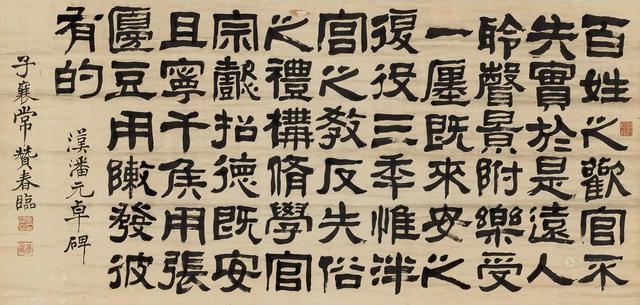 百姓心歡官不
失實於是遠人
聆聲景附樂受
一廛既來安之
復役三秊惟泮
宮之教反失俗
之禮構脩學官
宗懿招德既安
且寧干侯用張
籩豆用陳發彼
有的
漢潘元卓碑
子襄常贊春臨